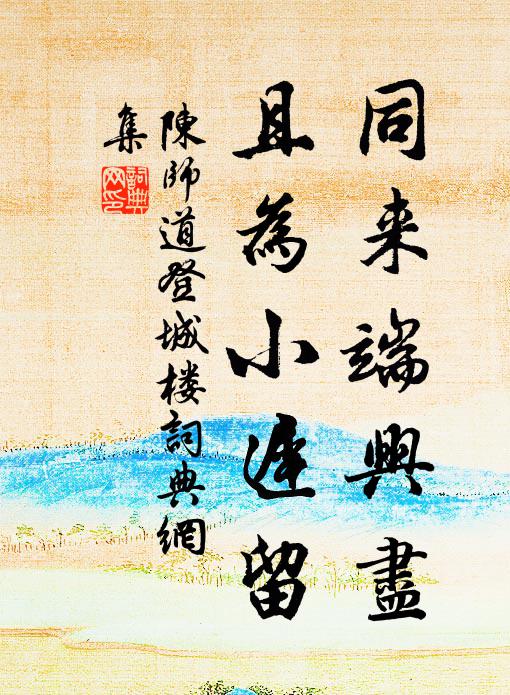 同来端興盡
且為小遲留
陳師道登城楼詞典網
集
詞典
网印